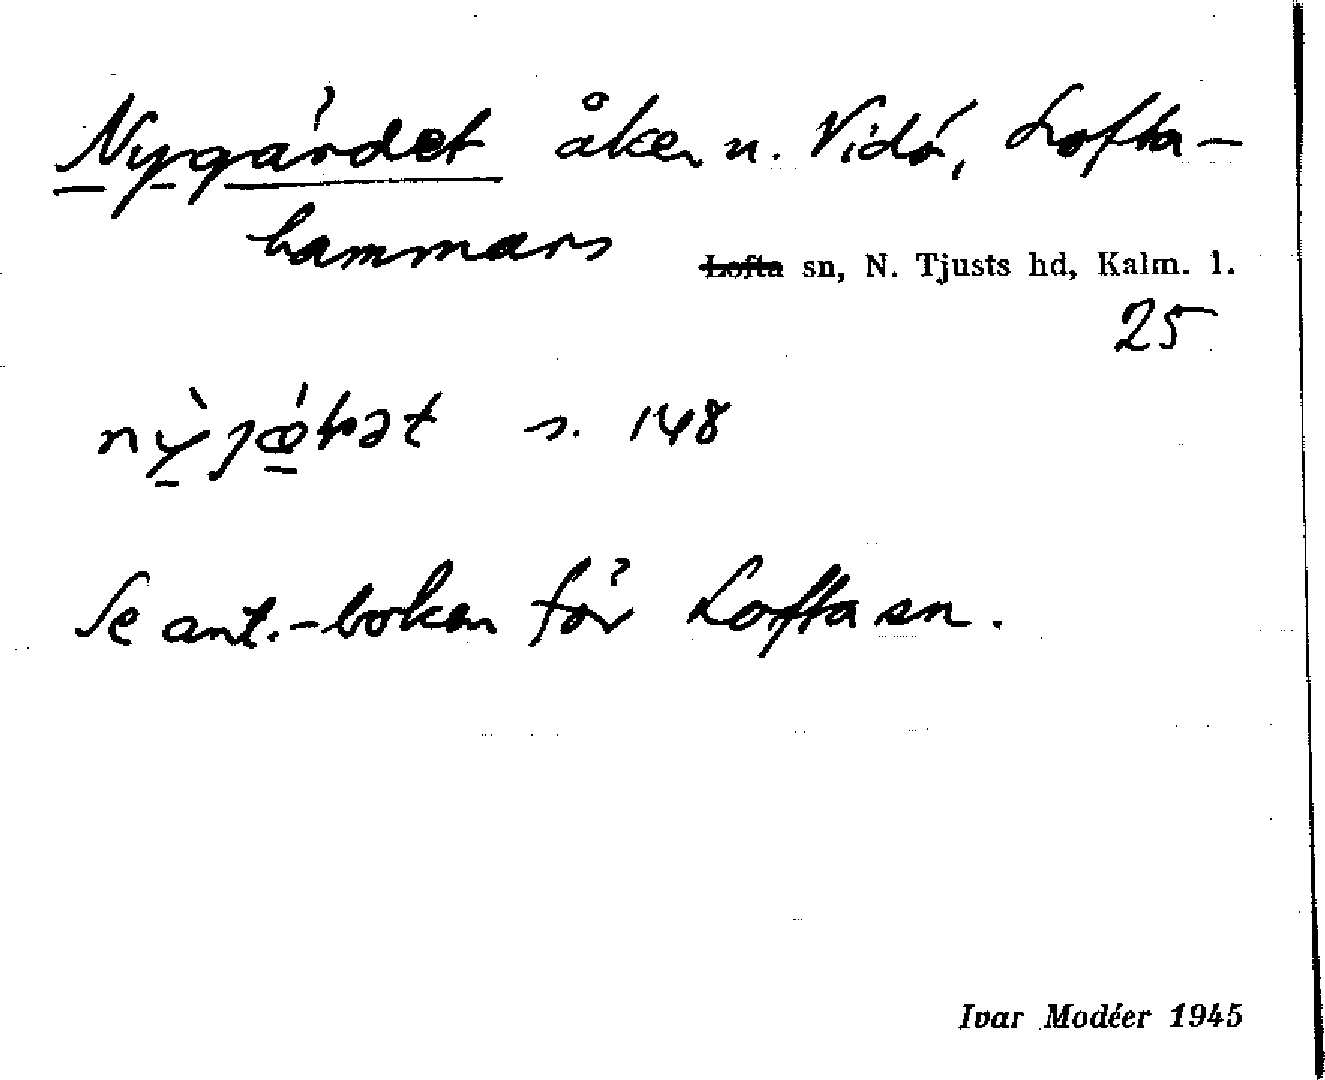 Nygärdet åker n. Vidö, Lofta-
hammars
Lofta sn, N. Tjusts hd, Kalm. l.
25
s. 148
Se ant.-boken för Lofta sn.
Ivar Modéer 1945